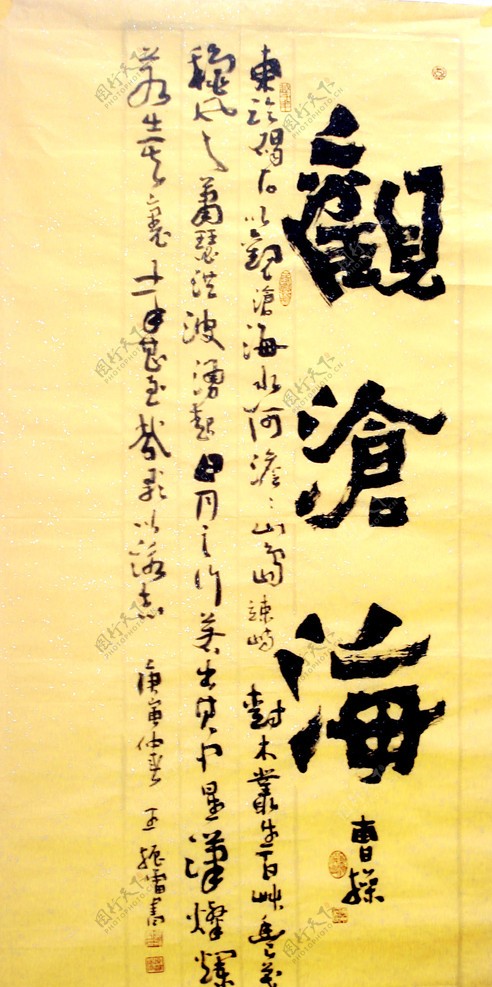 觀滄海
曹操
東臨碣石以觀滄海水何澹澹山島竦峙樹木叢生百艸豐茂
秋風蕭瑟洪波湧起日月之行若出其中星漢燦爛
若出其裏幸甚至哉歌以詠志 庚寅仲春 王振雷書
图行天下
PHOTOPHOTO.CN